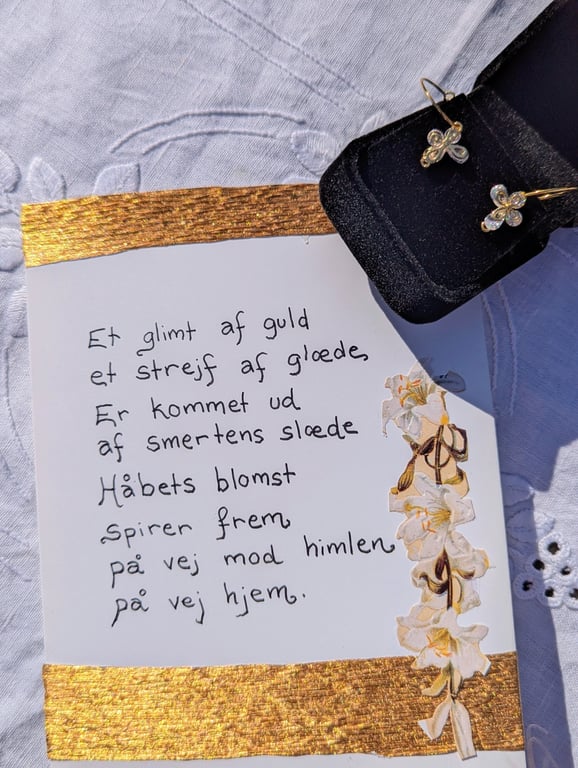 Et glimt af guld
et strejf af glæde
Er kommet ud
af smertens slæde
Håbets blomst
spirer frem
på vej mod himlen
på vej hjem.